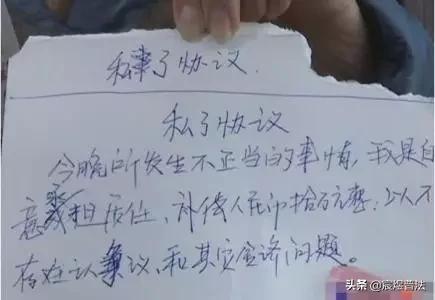 私了协议.
私了协议
今晚所发生不正当的事情,我是自
意承担责任、补偿人民币拾万元整.
存在认争议,和其它金诿问题。
头条 @宸煜普法